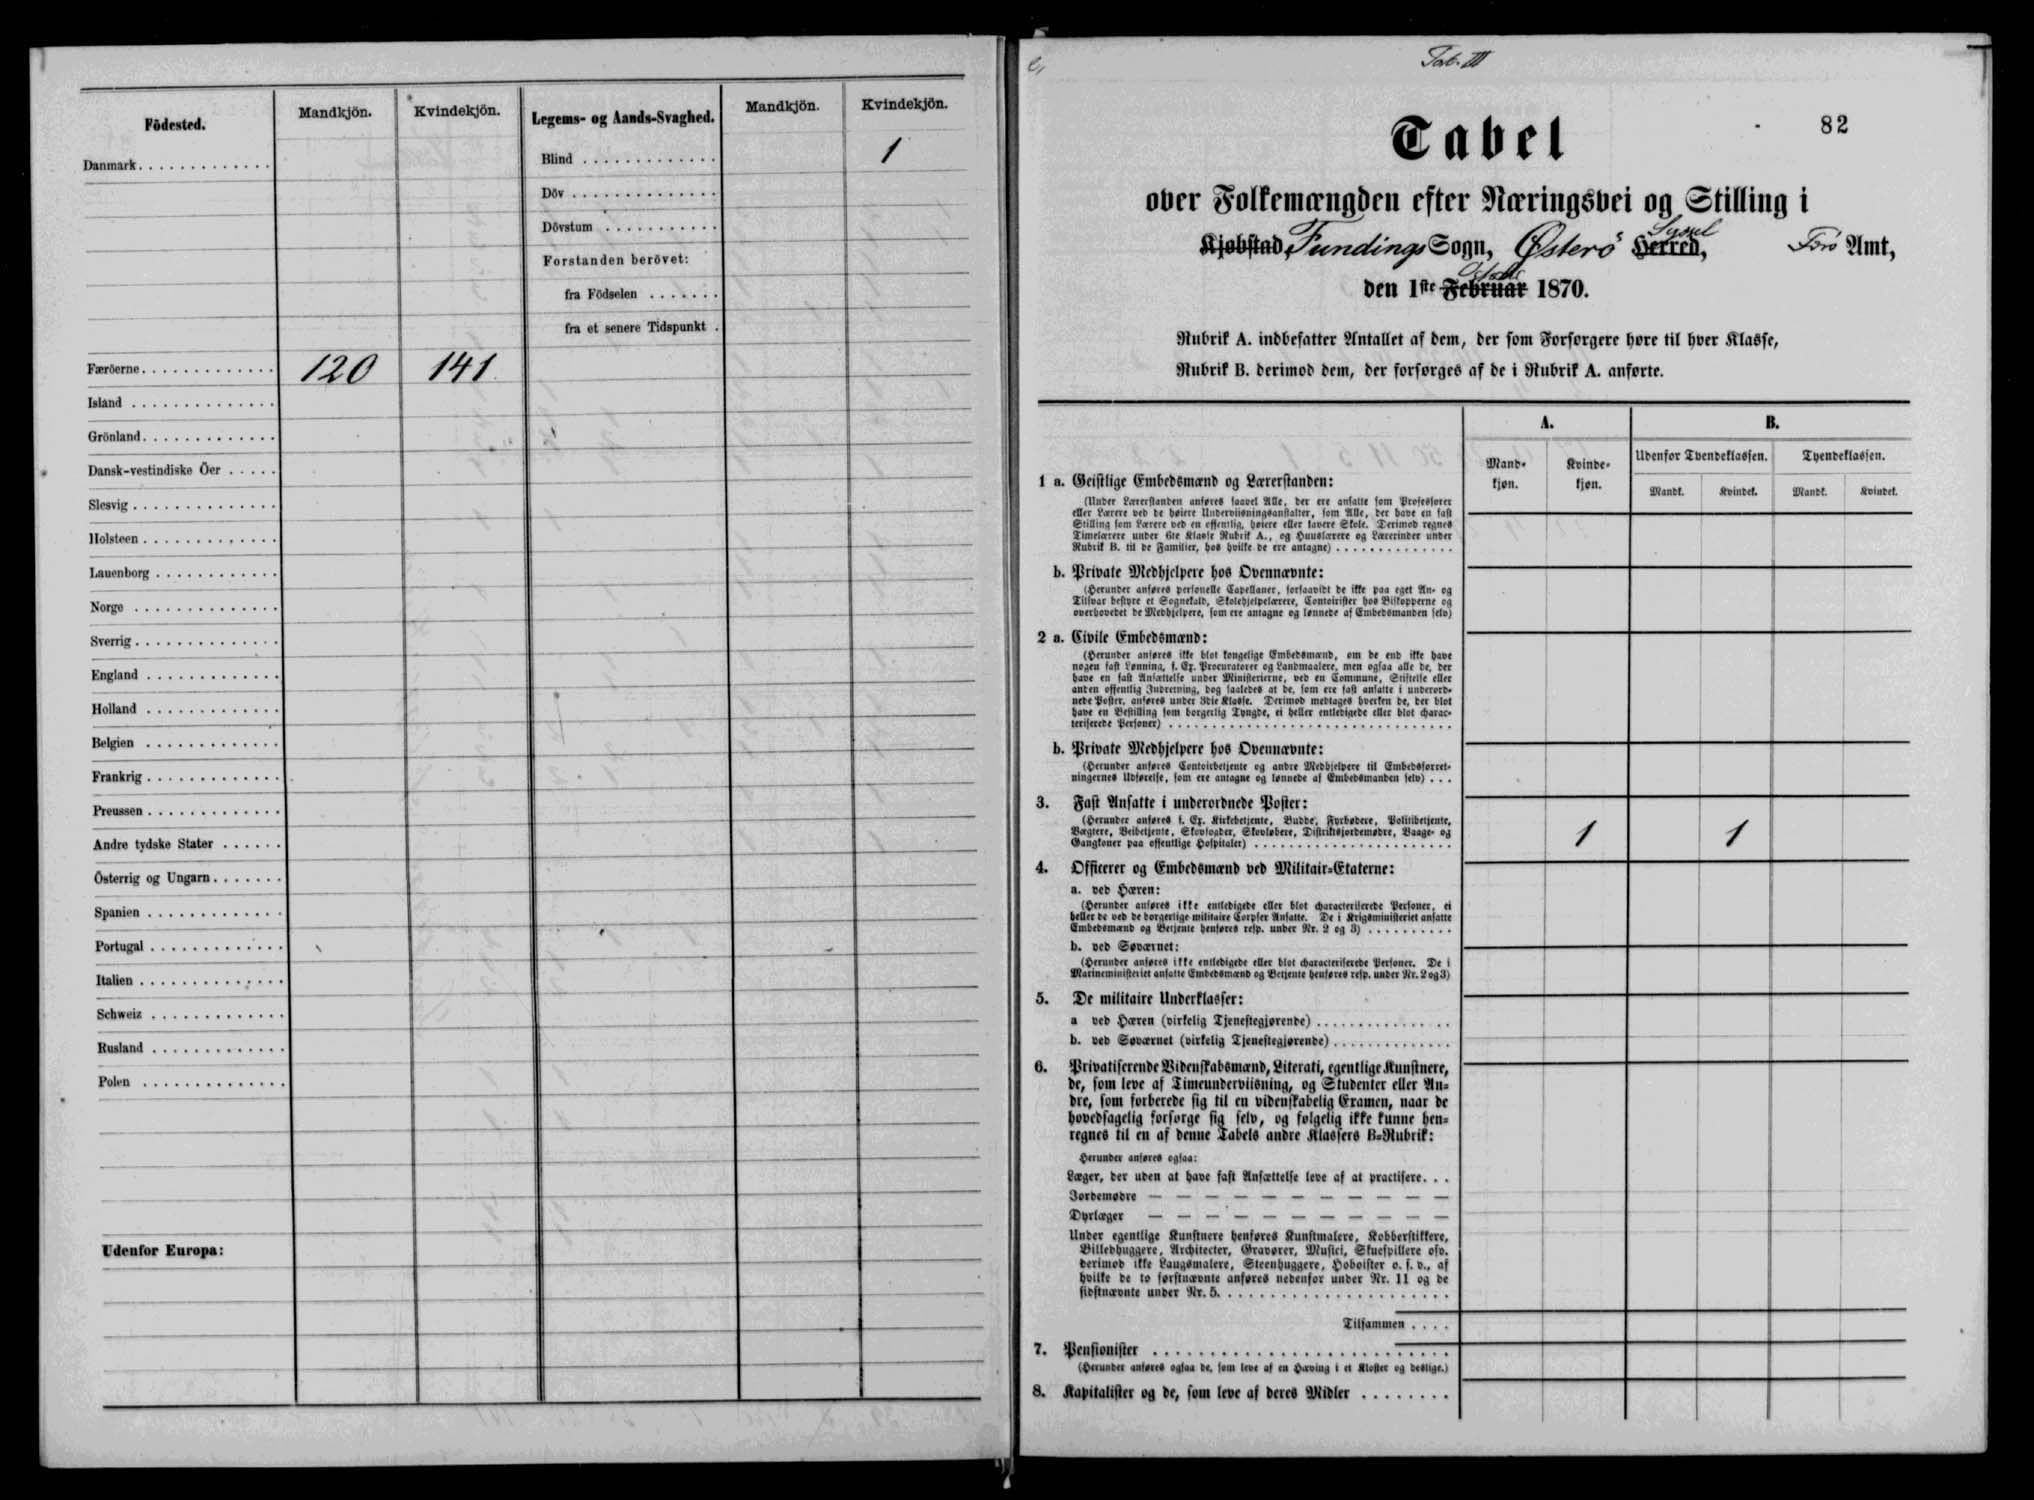 Födested.
Mandkjön.
Kvindekjön.
Legems- og Aands-Svaghed.
Mandkjön.
Kvindekjön.
Danmark
Færöerne 120 141
Island
Grönland
Dansk-vestindiske Öer
Slesvig
Holsteen
Lauenborg
Norge
Sverrig
England
Holland
Belgien
Frankrig
Preussen
Andre tydske Stater
Österrig og Ungarn
Spanien
Portugal
Italien
Schweiz
Rusland
Polen
Udenfor Europa:
Blind 1
Döv
Dövstum
Forstanden berövet:
fra Födselen
fra et senere Tidspunkt
Tab. III
82
Tabel
over Folkemængden efter Næringsvei og Stilling i
Kjøbstad, Fundings Sogn, Østerö Herred, Syssel Færö Amt,
den 1ste Februar October 1870.
Rubrik A. indbefatter Antallet af dem, der som Forsørgere høre til hver Klasse,
Rubrik B. derimod dem, der forsørges af de i Rubrik A. anførte.
A.
B.
Mand-
kjøn.
Kvinde-
kjøn.
Udenfor Tyendeklassen.
Tyendeklassen.
Mandk.
Kvindek.
Mandk.
Kvindek.
1 a. Geistlige Embedsmænd og Lærerstanden:
(Under Lærerstanden anføres saavel Alle, der ere ansatte som Professorer
eller Lærere ved de høiere Underviisningsanstalter, som Alle, der have en fast
Stilling som Lærere ved en offentlig, høiere eller lavere Skole. Derimod regnes
Timelærere under 6te Klasse Rubrik A., og Huuslærere og Lærerinder under
Rubrik B. til de Familier, hos hvilke de ere antagne)
b. Private Medhjelpere hos Ovennævnte:
(Herunder anføres personelle Capellaner, forsaavidt de ikke paa eget An- og
Tilsvar bestyre et Sognekald, Skolehjelpelærere, Contoirister hos Biskopperne og
overhovedet de Medhjelpere, som ere antagne og lønnede af Embedsmanden selv)
2 a. Civile Embedsmænd:
(Herunder anføres ikke blot kongelige Embedsmænd, om de end ikke have
nogen fast Lønning, f. Ex. Procuratorer og Landmaalere, men ogsaa alle de, der
have en fast Ansættelse under Ministerierne, ved en Commune, Stiftelse eller
anden offentlig Indretning, dog saaledes at de, som ere fast ansatte i underord-
nede Poster, anføres under 3die Klasse. Derimod medtages hverken de, der blot
have en Bestilling som borgerlig Tyngde, ei heller entledigede eller blot charac-
teriserede Personer)
b. Private Medhjelpere hos Ovennævnte:
(Herunder anføres Contoirbetjente og andre Medhjelpere til Embedsforret-
ningernes Udførelse, som ere antagne og lønnede af Embedsmanden selv)
3. Fast Ansatte i underordnede Poster:
(Herunder anføres f. Ex. Kirkebetjente, Budde, Fyrbødere, Politibetjente,
Vægtere, Veibetjente, Skovfogder, Skovløbere, Distriktsjordemødre, Vaage- og
Gangkoner paa offentlige Hospitaler) 1 1
4. Officerer og Embedsmænd ved Militair-Etaterne:
a. ved Hæren:
(Herunder anføres ikke entledigede eller blot characteriserede Personer, ei
heller de ved de borgerlige militaire Corpser Ansatte. De i Krigsministeriet ansatte
Embedsmænd og Betjente henføres resp. under Nr. 2 og 3)
b. ved Søværnet:
(Herunder anføres ikke entledigede eller blot characteriserede Personer. De i
Marineministeriet ansatte Embedsmænd og Betjente henføres resp. under Nr. 2 og 3)
5. De militaire Underklasser:
a ved Hæren (virkelig Tjenestegjørende)
b. ved Søværnet (virkelig Tjenestegjørende)
6. Privatiserende Videnskabsmænd, Literati, egentlige Kunstnere,
de, som leve af Timeunderviisning, og Studenter eller An-
dre, som forberede sig til en videnskabelig Examen, naar de
hovedsagelig forsørge sig selv, og følgelig ikke kunne hen-
regnes til en af denne Tabels andre Klassers B-Rubrik:
Herunder anføres ogsaa:
Læger, der uden at have fast Ansættelse leve af at practisere
Jordemødre — — — — — — — — — — —
Dyrlæger — — — — — — — — — — —
Under egentlige Kunstnere henføres Kunstmalere, Kobberstikkere,
Billedhuggere, Architecter, Gravører, Musici, Skuespillere osv.
derimod ikke Laugsmalere, Steenhuggere, Hoboister o. s. v., af
hvilke de to førstnævnte anføres nedenfor under Nr. 11 og de
sidstnævnte under Nr. 5.
Tilsammen
7. Pensionister
(Herunder anføres ogsaa de, som leve af en Hæving i et Kloster og deslige.)
8. Kapitalister og de, som leve af deres Midler